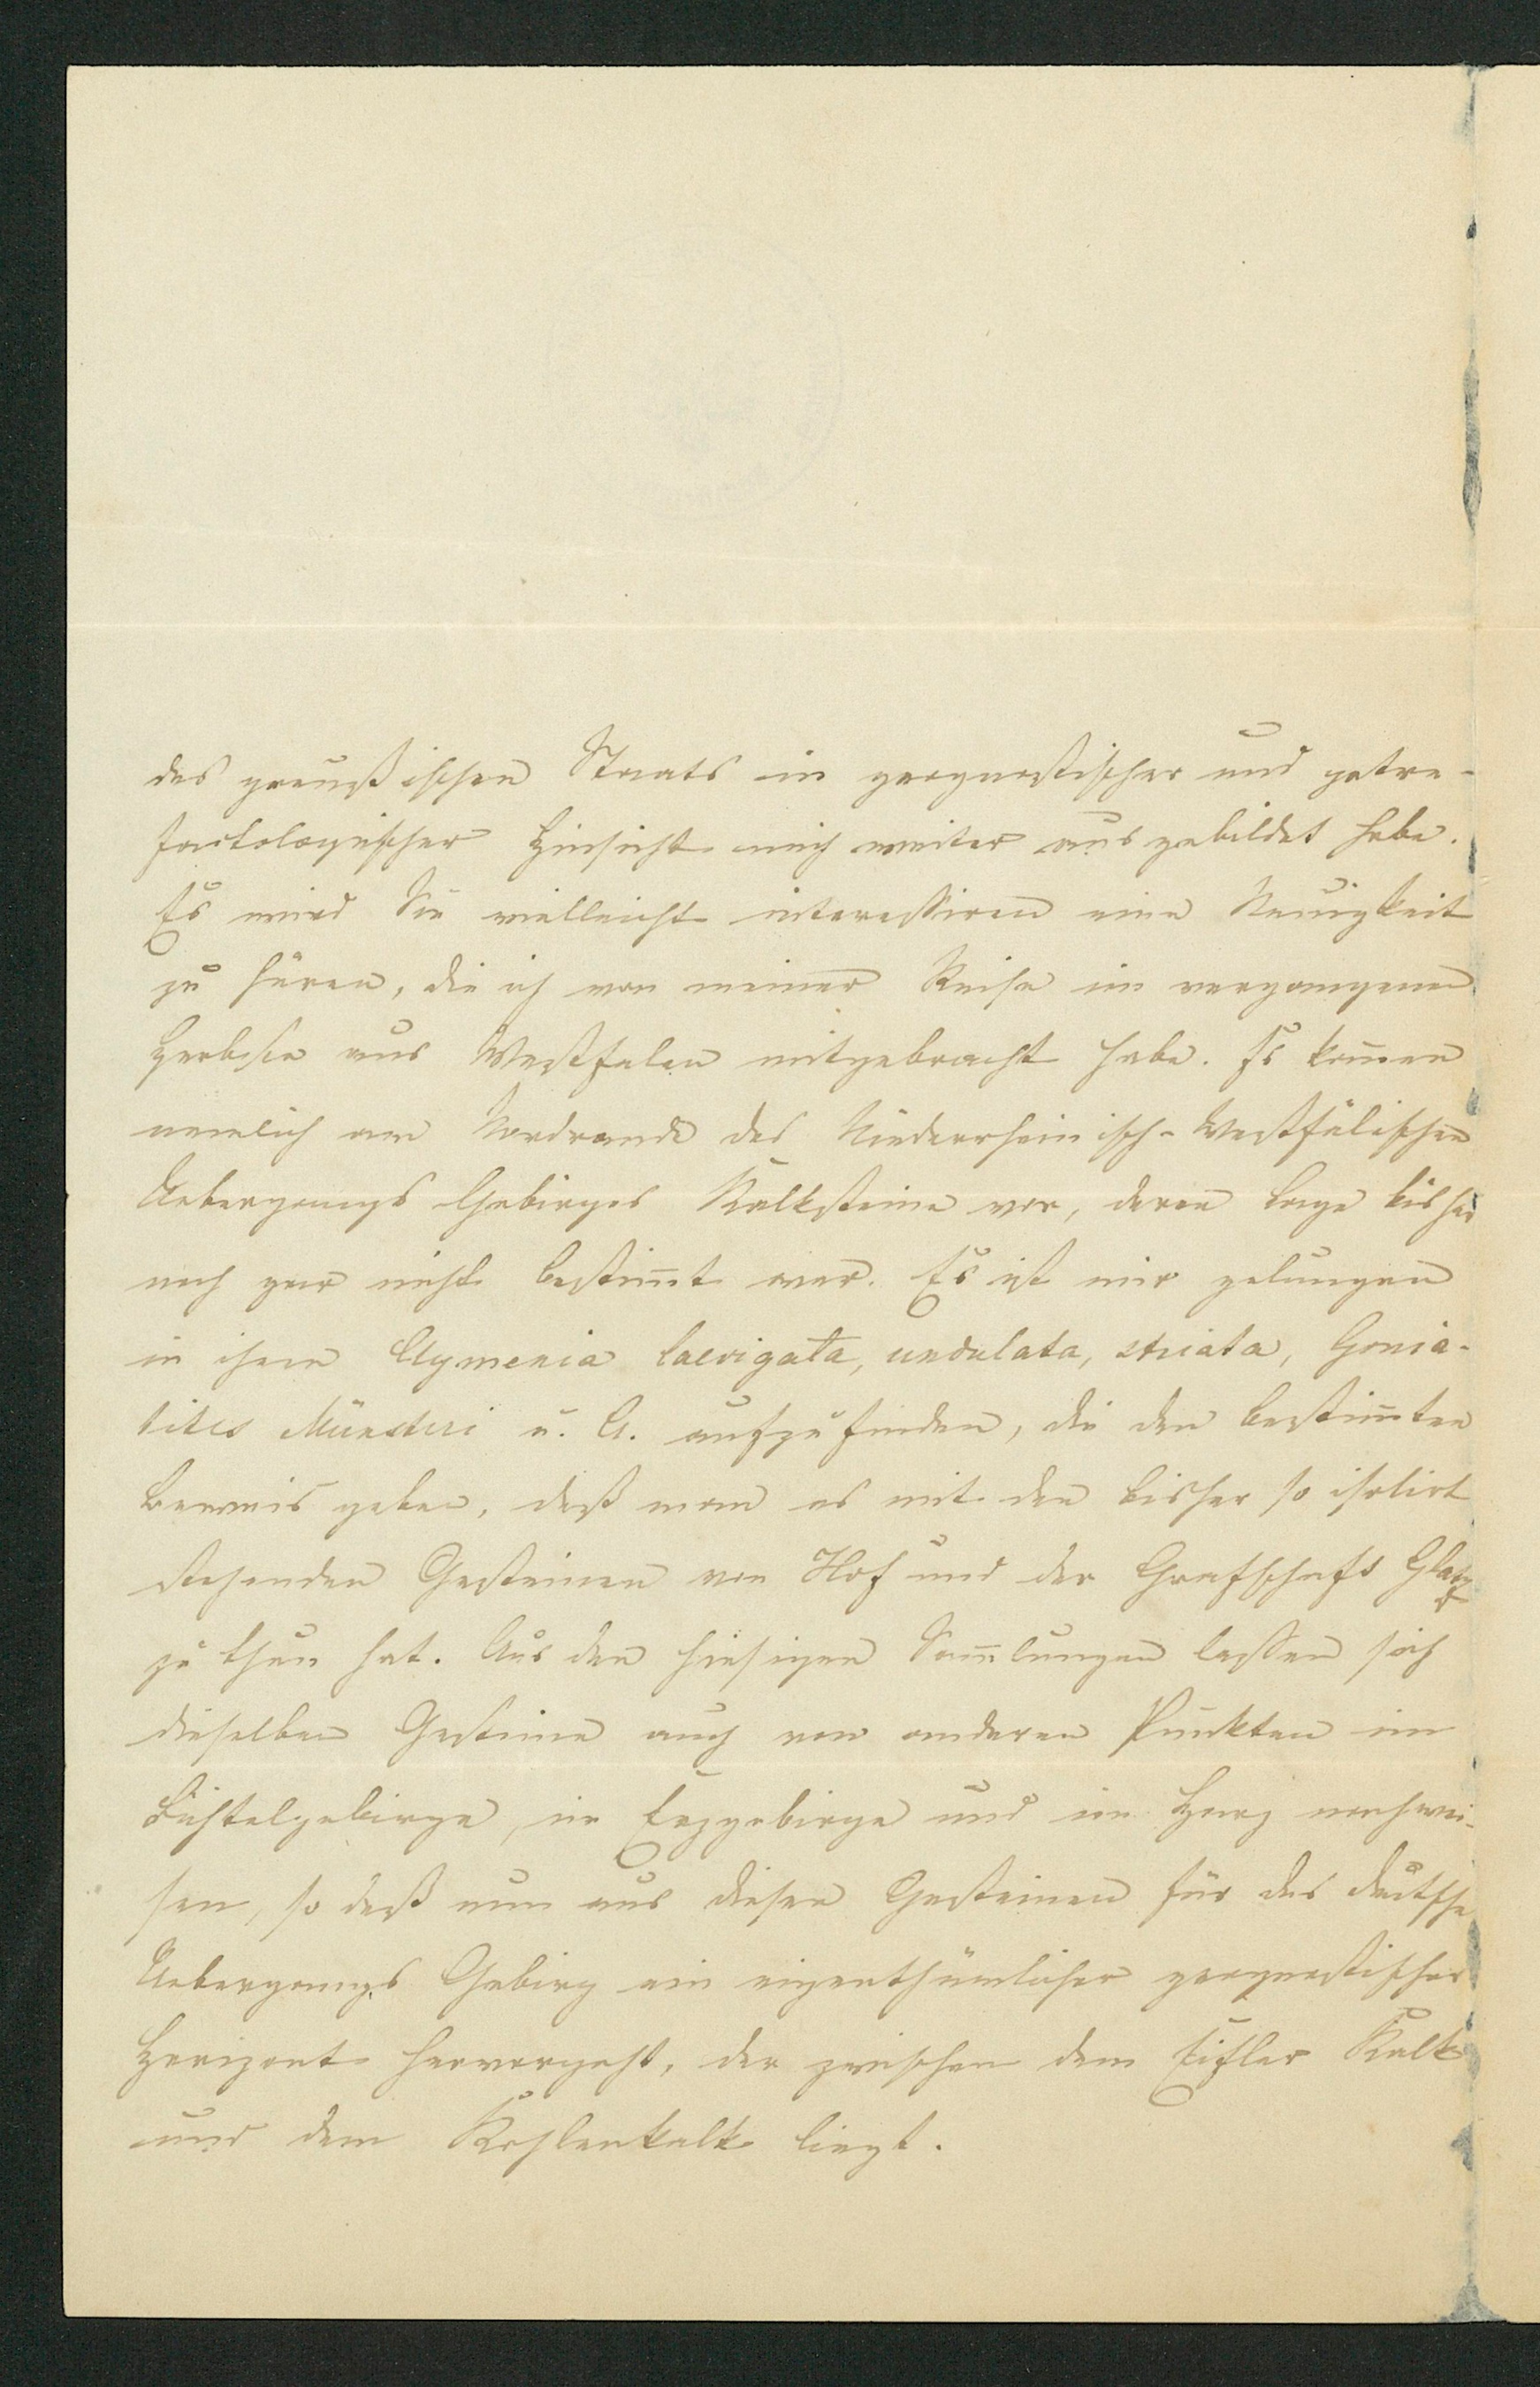 des preußischen Staats in geognostischer und petre-
factologischer Hinsicht mich weiter ausgebildet habe.
Es wird Sie vielleicht interessiren eine Neuigkeit
zu hören, die ich von meiner Reise im vergangenen
Herbste aus Westfalen mitgebracht habe. Es kom̄en
nemlich am Nordrande des Niederrheinisch-Westfälischen
Uebergangs Gebirges Kalksteine vor, deren Lage bisher
noch gar nicht bestim̄t war. Es ist mir gelungen
in ihnen Clymenia laevigata, undulata, striata, Gonia-
tites Münsteri u. A. aufzufinden, die den bestim̄ten
Beweis geben, daß man es mit den bisher so isolirt
stehenden Gesteinen von Hof und der Grafschaft Glatz
zu thun hat. Aus den hiesigen Sam̄lungen lassen sich
dieselben Gesteine auch von anderen Punkten im
Fichtelgebirge, im Erzgebirge und im Harz nachwei-
sen, so daß nun aus diesen Gesteinen für das deutsche
Uebergangs Gebirg ein eigenthümlicher geognostischer
Horizont hervorgeht, der zwischen dem Eifler Kalk
und dem Kohlenkalk liegt.